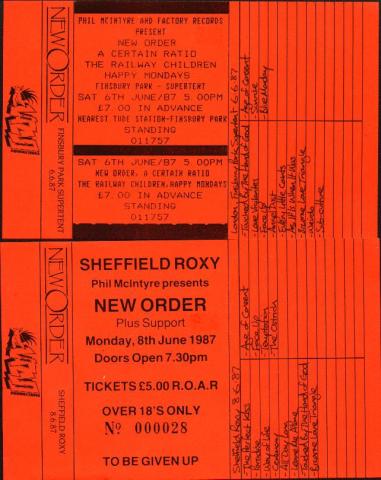 NEW ORDER
FINSBURY PARK SUPERTENT
6.6.87
PHIL MCINTYRE AND FACTORY RECORDS
PRESENT
NEW ORDER
A CERTAIN RATIO
THE RAILWAY CHILDREN
HAPPY MONDAYS
FINSBURY PARK - SUPERTENT
SAT 6TH JUNE/87 5.00PM
£7.00 IN ADVANCE
NEAREST TUBE STATION-FINSBURY PARK
STANDING
011757
SAT 6TH JUNE/87 5 00PM
NEW ORDER, A CERTAIN RATIO
THE RAILWAY CHILDREN, HAPPY MONDAYS
£7.00 IN ADVANCE
STANDING
011757
London, Finsbury Park Supertent 6.6.87
- Touched By The Hand of God
- Love Vigilantes
- Face Up
- Angel Dust
- Every Little Counts
- As It Is When It Was
- Bizarre Love Triangle
- Weirdo
- Sub-culture
- Age of Consent
- Sunrise
- Blue Monday
NEW ORDER
SHEFFIELD ROXY
8.6.87
SHEFFIELD ROXY
Phil McIntyre presents
NEW ORDER
Plus Support
Monday, 8th June 1987
Doors Open 7.30pm
TICKETS £5.00 R.O.A.R
OVER 18'S ONLY
Nº 000028
TO BE GIVEN UP
Sheffield Roxy 8.6.87
- The Perfect Kiss
- Paradise
- Way of Life
- Ceremony
- All Day Long
- Leave Me Alone
- Touched By The Hand of God
- Bizarre Love Triangle
- Age of Consent
- Face Up
- Temptation
- The Ostrich